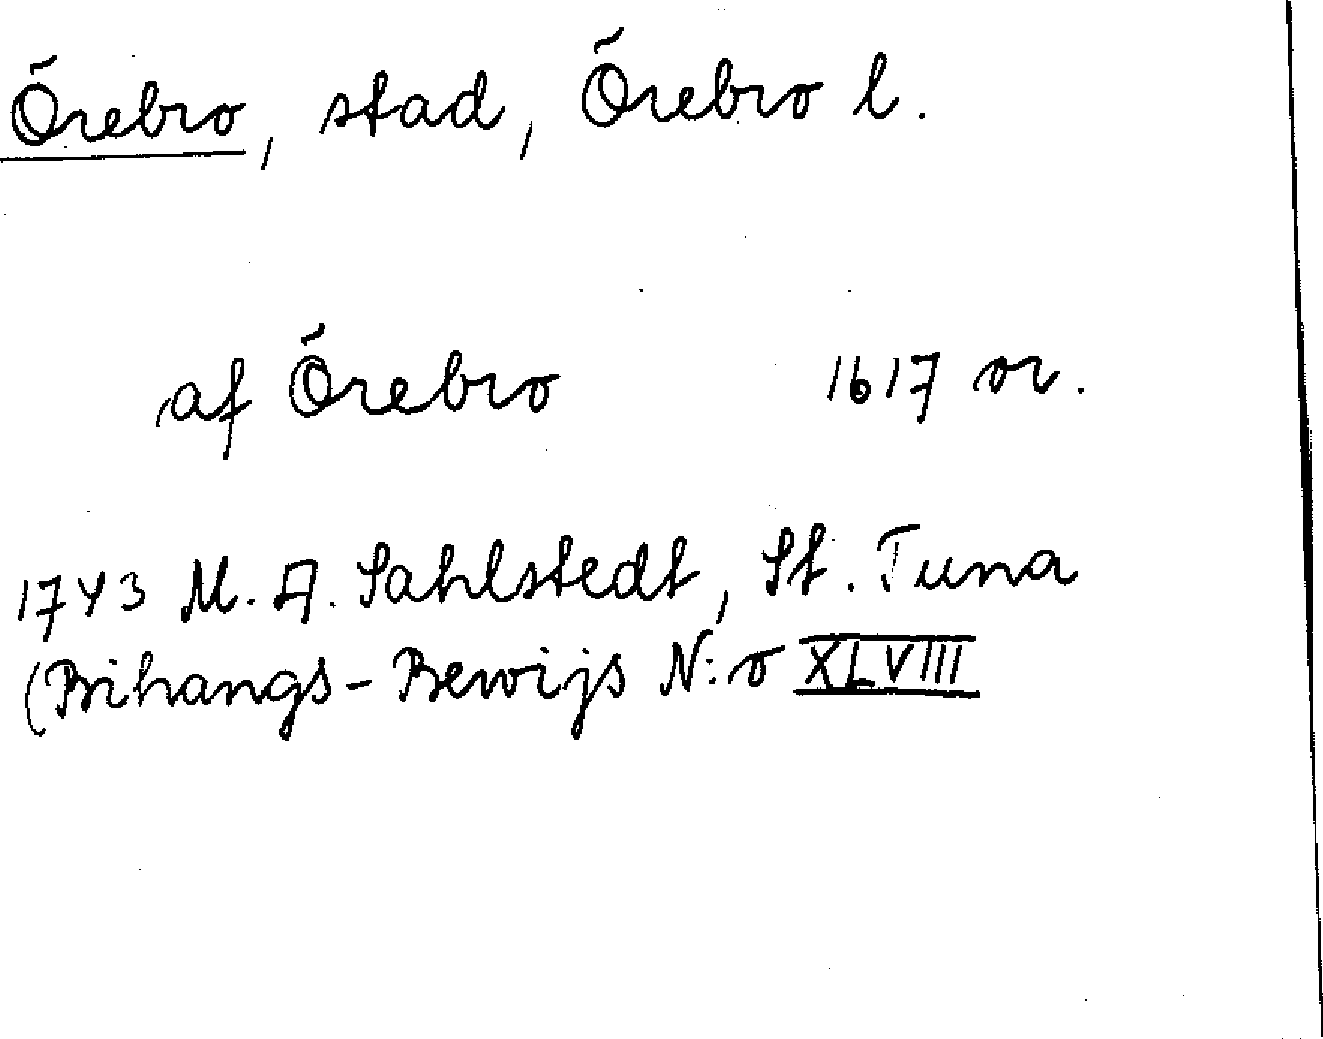 Örebro, stad, Örebro l.
af Örebro 1617 or.
1743 M. A. Sahlstedt, St. Tuna
(Bihangs-Bewijs N:o XLVIII